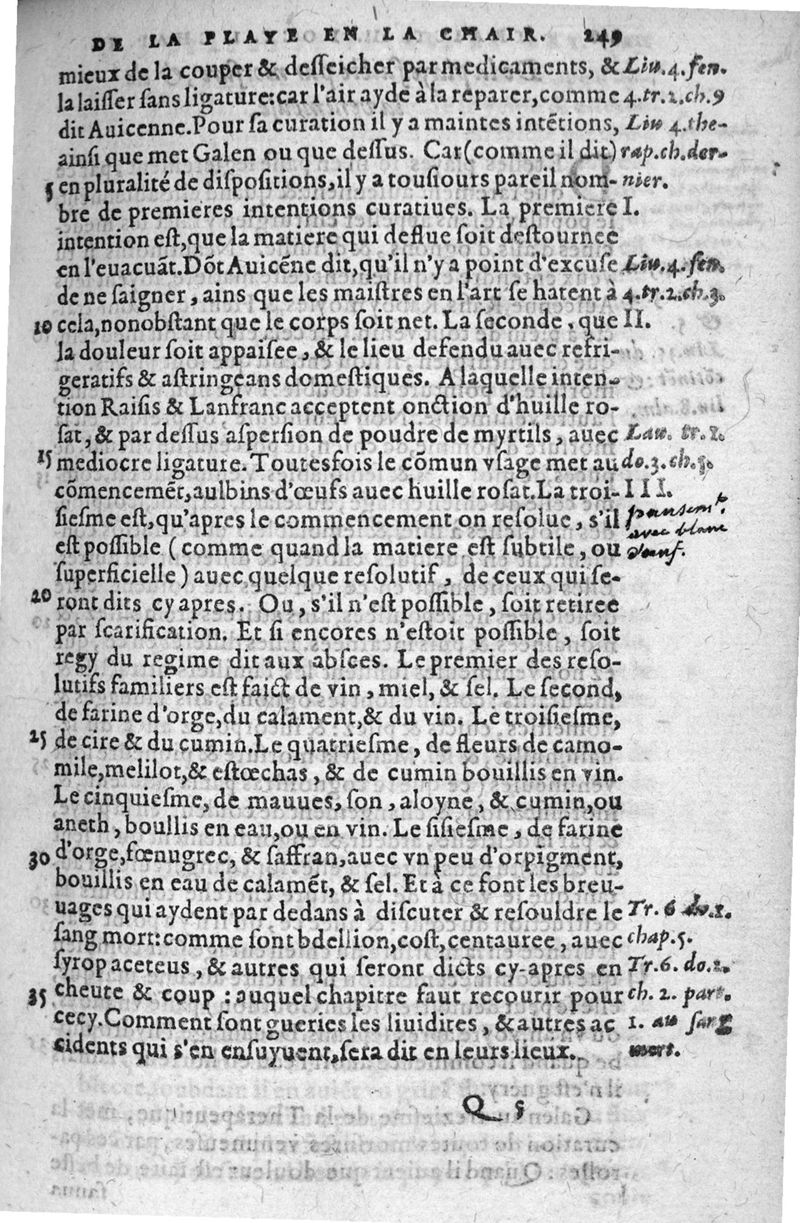 DE LA PLAYE EN LA CHAIR. 249
mieux de la couper & desseicher par medicaments, & Liu. 4. fen.
la laisser sans ligature: car l'air ayde à la reparer, comme 4. tr. 2. ch. 9
dit Auicenne. Pour sa curation il y a maintes intẽtions, Liu 4. the-
ainsi que met Galen ou que dessus. Car (comme il dit) rap. ch. der-
5 en pluralité de dispositions, il y a tousiours pareil nom- nier.
bre de premieres intentions curatiues. La premiere I.
intention est, que la matiere qui deflue soit destournee
en l'euacuãt. Dõt Auicẽne dit, qu'il n'y a point d'excuse Liu. 4. fen.
de ne saigner, ains que les maistres en l'art se hatent à 4. tr. 2. ch. 3.
10 cela, nonobstant que le corps soit net. La seconde, que II.
la douleur soit appaisee, & le lieu defendu auec refri-
geratifs & astringeans domestiques. A laquelle inten-
tion Raisis & Lanfranc acceptent onction d'huille ro-
sat, & par dessus aspersion de poudre de myrtils, auec Lan. tr. 1.
15 mediocre ligature. Toutesfois le cõmun vsage met au do. 3. ch. 5.
cõmencemẽt, aulbins d'œufs auec huille rosat. La troi- III.
siesme est, qu'apres le commencement on resolue, s'il
est possible (comme quand la matiere est subtile, ou
superficielle) auec quelque resolutif, de ceux qui se-
20 ront dits cy apres. Ou, s'il n'est possible, soit retiree
par scarification. Et si encores n'estoit possible, soit
regy du regime dit aux absces. Le premier des reso-
lutifs familiers est faict de vin, miel, & sel. Le second,
de farine d'orge, du calament, & du vin. Le troisiesme,
25 de cire & du cumin. Le quatriesme, de fleurs de camo-
mile, melilot, & estœchas, & de cumin bouillis en vin.
Le cinquiesme, de mauues, son, aloyne, & cumin, ou
aneth, boullis en eau, ou en vin. Le sisiesme, de farine
30 d'orge, fœnugrec, & saffran, auec vn peu d'orpigment,
bouillis en eau de calamẽt, & sel. Et à ce font les breu-
uages qui aydent par dedans à discuter & resouldre le Tr. 6 do. 1.
sang mort: comme sont bdellion, cost, centauree, auec chap. 5.
syrop aceteus, & autres qui seront dicts cy-apres en Tr. 6. do. 2.
35 cheute & coup: auquel chapitre faut recourir pour ch. 2. part.
cecy. Comment sont gueries les liuidites, & autres ac 1. au sang
cidents qui s'en ensuyuent, sera dit en leurs lieux. mort.
Q 5